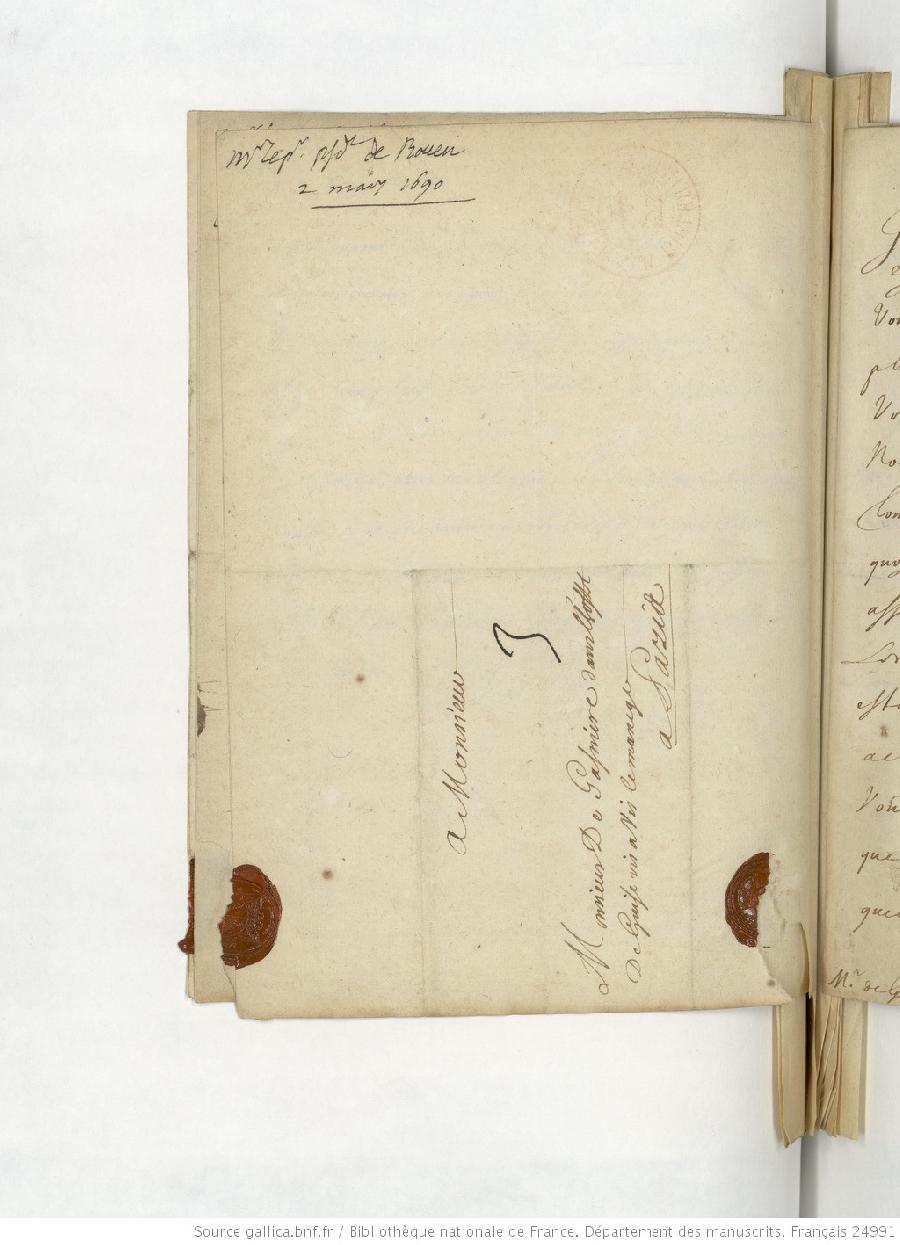 Mr le pr. psdt de Rouen
2 mars 1690
A Monsieur
Monsieur De Gaignieres dans lhostel
De Guise vis a vis le manege
a Paris
3
Vou
Vo
No
Con
que
ass
esta
ac
Vou
que
que
Mr. de G
Source gallica.bnf.fr / Bibliothèque nationale de France. Département des manuscrits. Français 24991